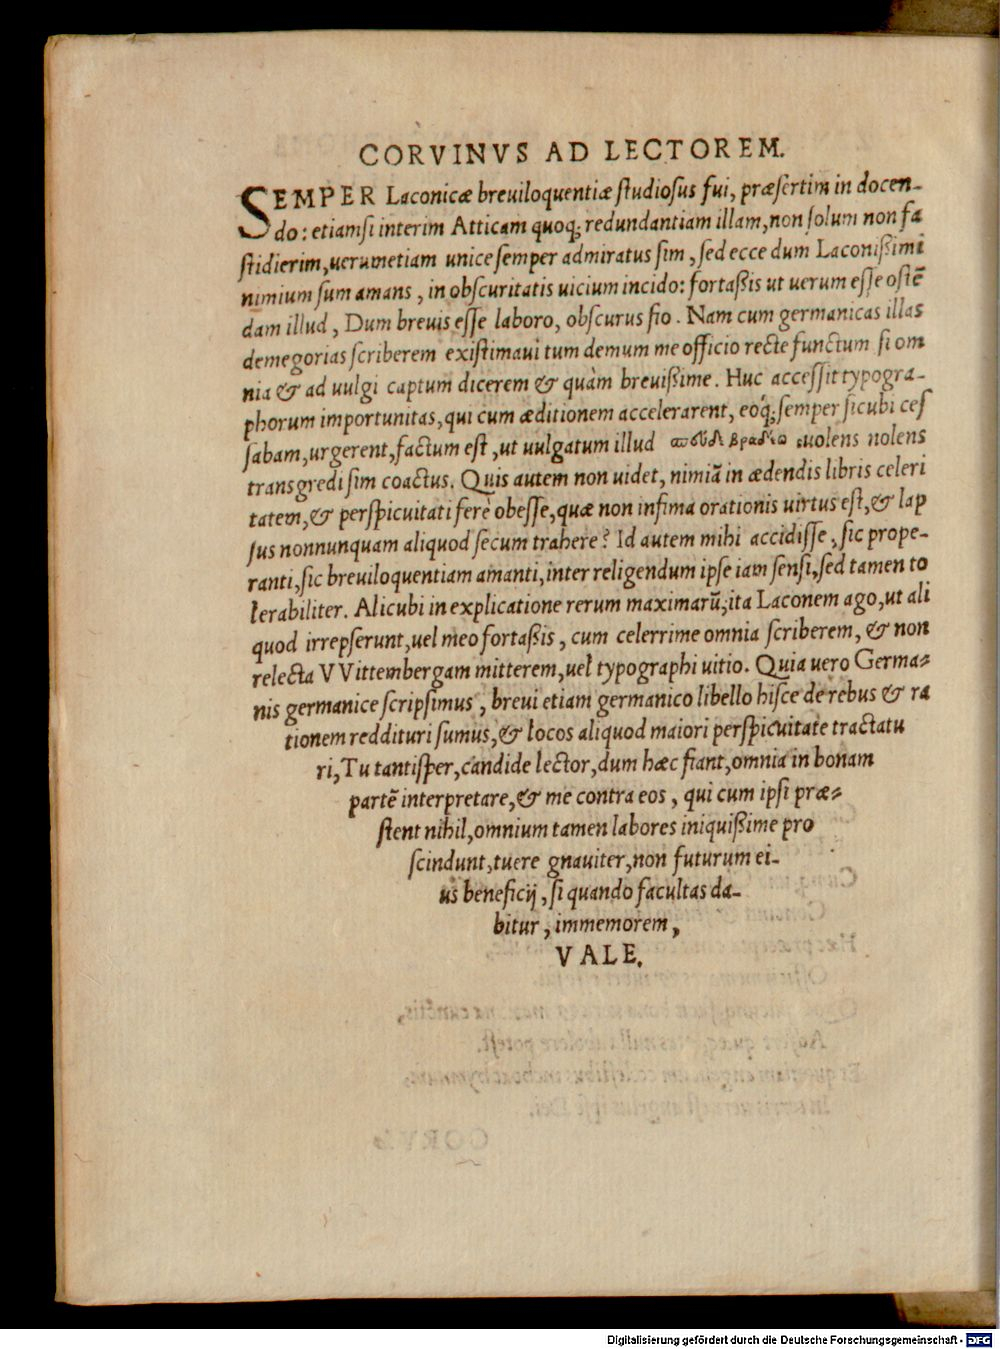 CORVINVS AD LECTOREM.
SEMPER Laconicæ breuiloquentiæ studiosus fui, præsertim in docen-
do: etiamsi interim Atticam quoq; redundantiam illam, non solum non fa
stidierim, uerumetiam unice semper admiratus sim, sed ecce dum Laconißimi
nimium sum amans, in obscuritatis uicium incido: fortaßis ut uerum esse ostē
dam illud, Dum breuis esse laboro, obscurus fio. Nam cum germanicas illas
demegorias scriberem existimaui tum demum me officio recte functum si om
nia & ad uulgi captum dicerem & quàm breuißime. Huc accessit typogra-
phorum importunitas, qui cum æditionem accelerarent, eoq́; semper sicubi ces
sabam, urgerent, factum est, ut uulgatum illud σπεῦδε βραδέως uolens nolens
transgredi sim coactus. Quis autem non uidet, nimiā in ædendis libris celeri
tatem, & perspicuitati ferè obesse, quæ non infima orationis uirtus est, & lap
sus nonnunquam aliquod secum trahere? Id autem mihi accidisse, sic prope-
ranti, sic breuiloquentiam amanti, inter religendum ipse iam sensi, sed tamen to
lerabiliter. Alicubi in explicatione rerum maximarū, ita Laconem ago, ut ali
quod irrepserunt, uel meo fortaßis, cum celerrime omnia scriberem, & non
relecta VVittembergam mitterem, uel typographi uitio. Quia uero Germa-
nis germanice scripsimus, breui etiam germanico libello hisce de rebus & ra
tionem reddituri sumus, & locos aliquod maiori perspicuitate tractatu
ri, Tu tantisper, candide lector, dum hæc fiant, omnia in bonam
partē interpretare, & me contra eos, qui cum ipsi præ-
stent nihil, omnium tamen labores iniquißime pro
scindunt, tuere gnauiter, non futurum ei-
us beneficij, si quando facultas da-
bitur, immemorem,
VALE.
Digitalisierung gefördert durch die Deutsche Forschungsgemeinschaft - DFG